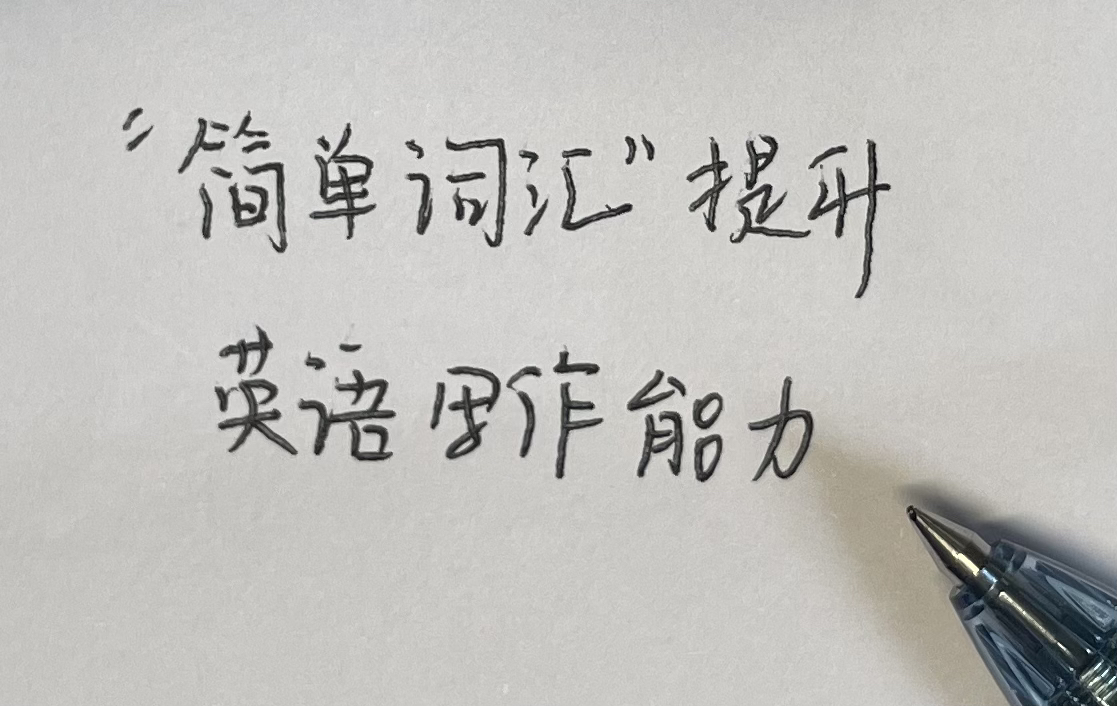 “简单词汇”提升
英语写作能力